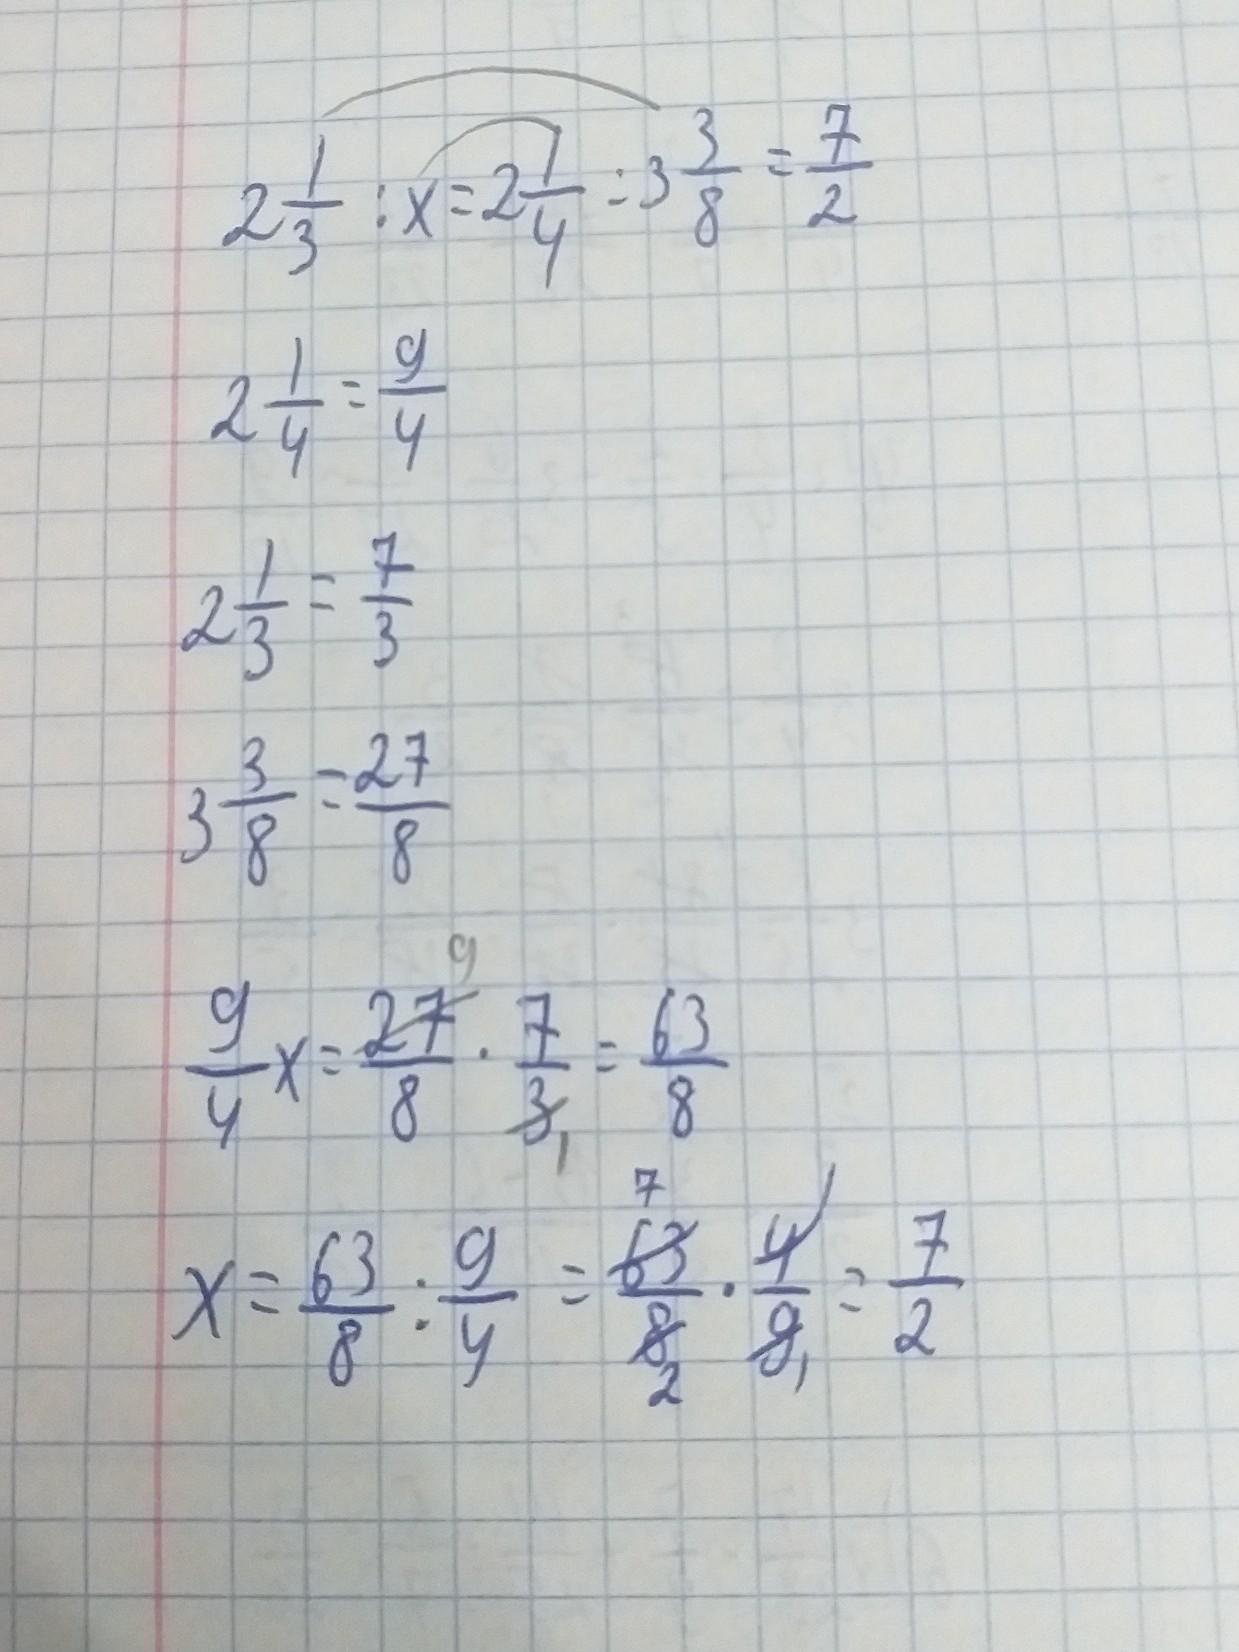 2 1/3 : x = 2 1/4 : 3 3/8 = 7/2
2 1/4 = 9/4
2 1/3 = 7/3
3 3/8 = 27/8
9
9/4 x = 27/8 · 7/3 = 63/8
1
7
x = 63/8 : 9/4 = 63/8 · 4/9 = 7/2
2 1